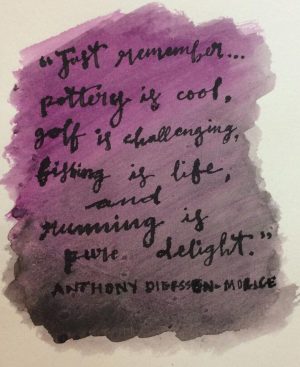 "Just remember...
pottery is cool,
golf is challenging,
fishing is life,
and
running is
pure delight."
ANTHONY